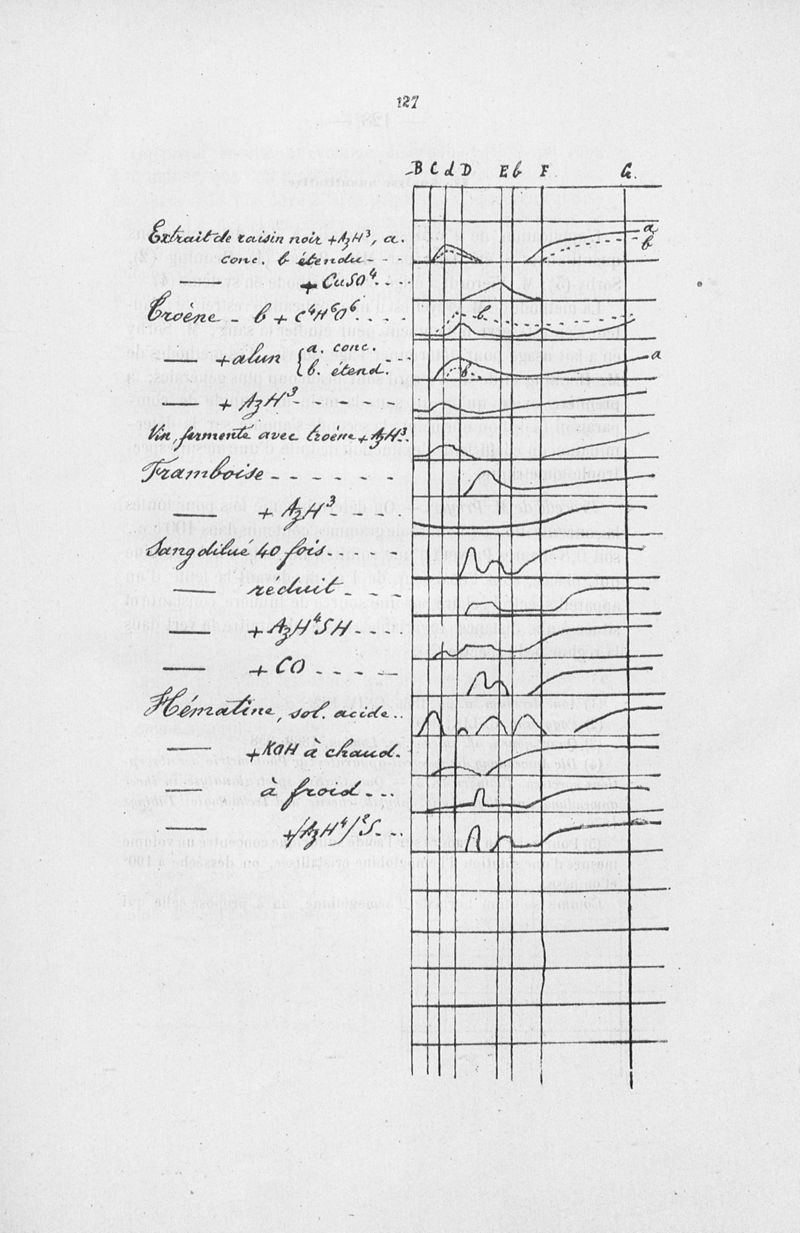 127
B C d D E b F G.
Extrait de raisin noir + AzH³, a.
conc. b étendu - - - a
b
— + CuSO⁴. . . .
Troène - b + C⁴H⁶O⁶. . . . b
+ alun { a. conc.
b. étend. - - - a
b
— + AzH³ - - - - - -
Vin fermenté avec troène + AzH³.
Framboise - - - - - -
— + AzH³ - - - - -
Sang dilué 40 fois - - - - -
— réduit - - - -
— + AzH⁴SH - - - -
— + CO - - - - -
Hématine, sol. acide . .
— + KOH à chaud. .
— à froid - - -
— +/AzH⁴/²S - - -